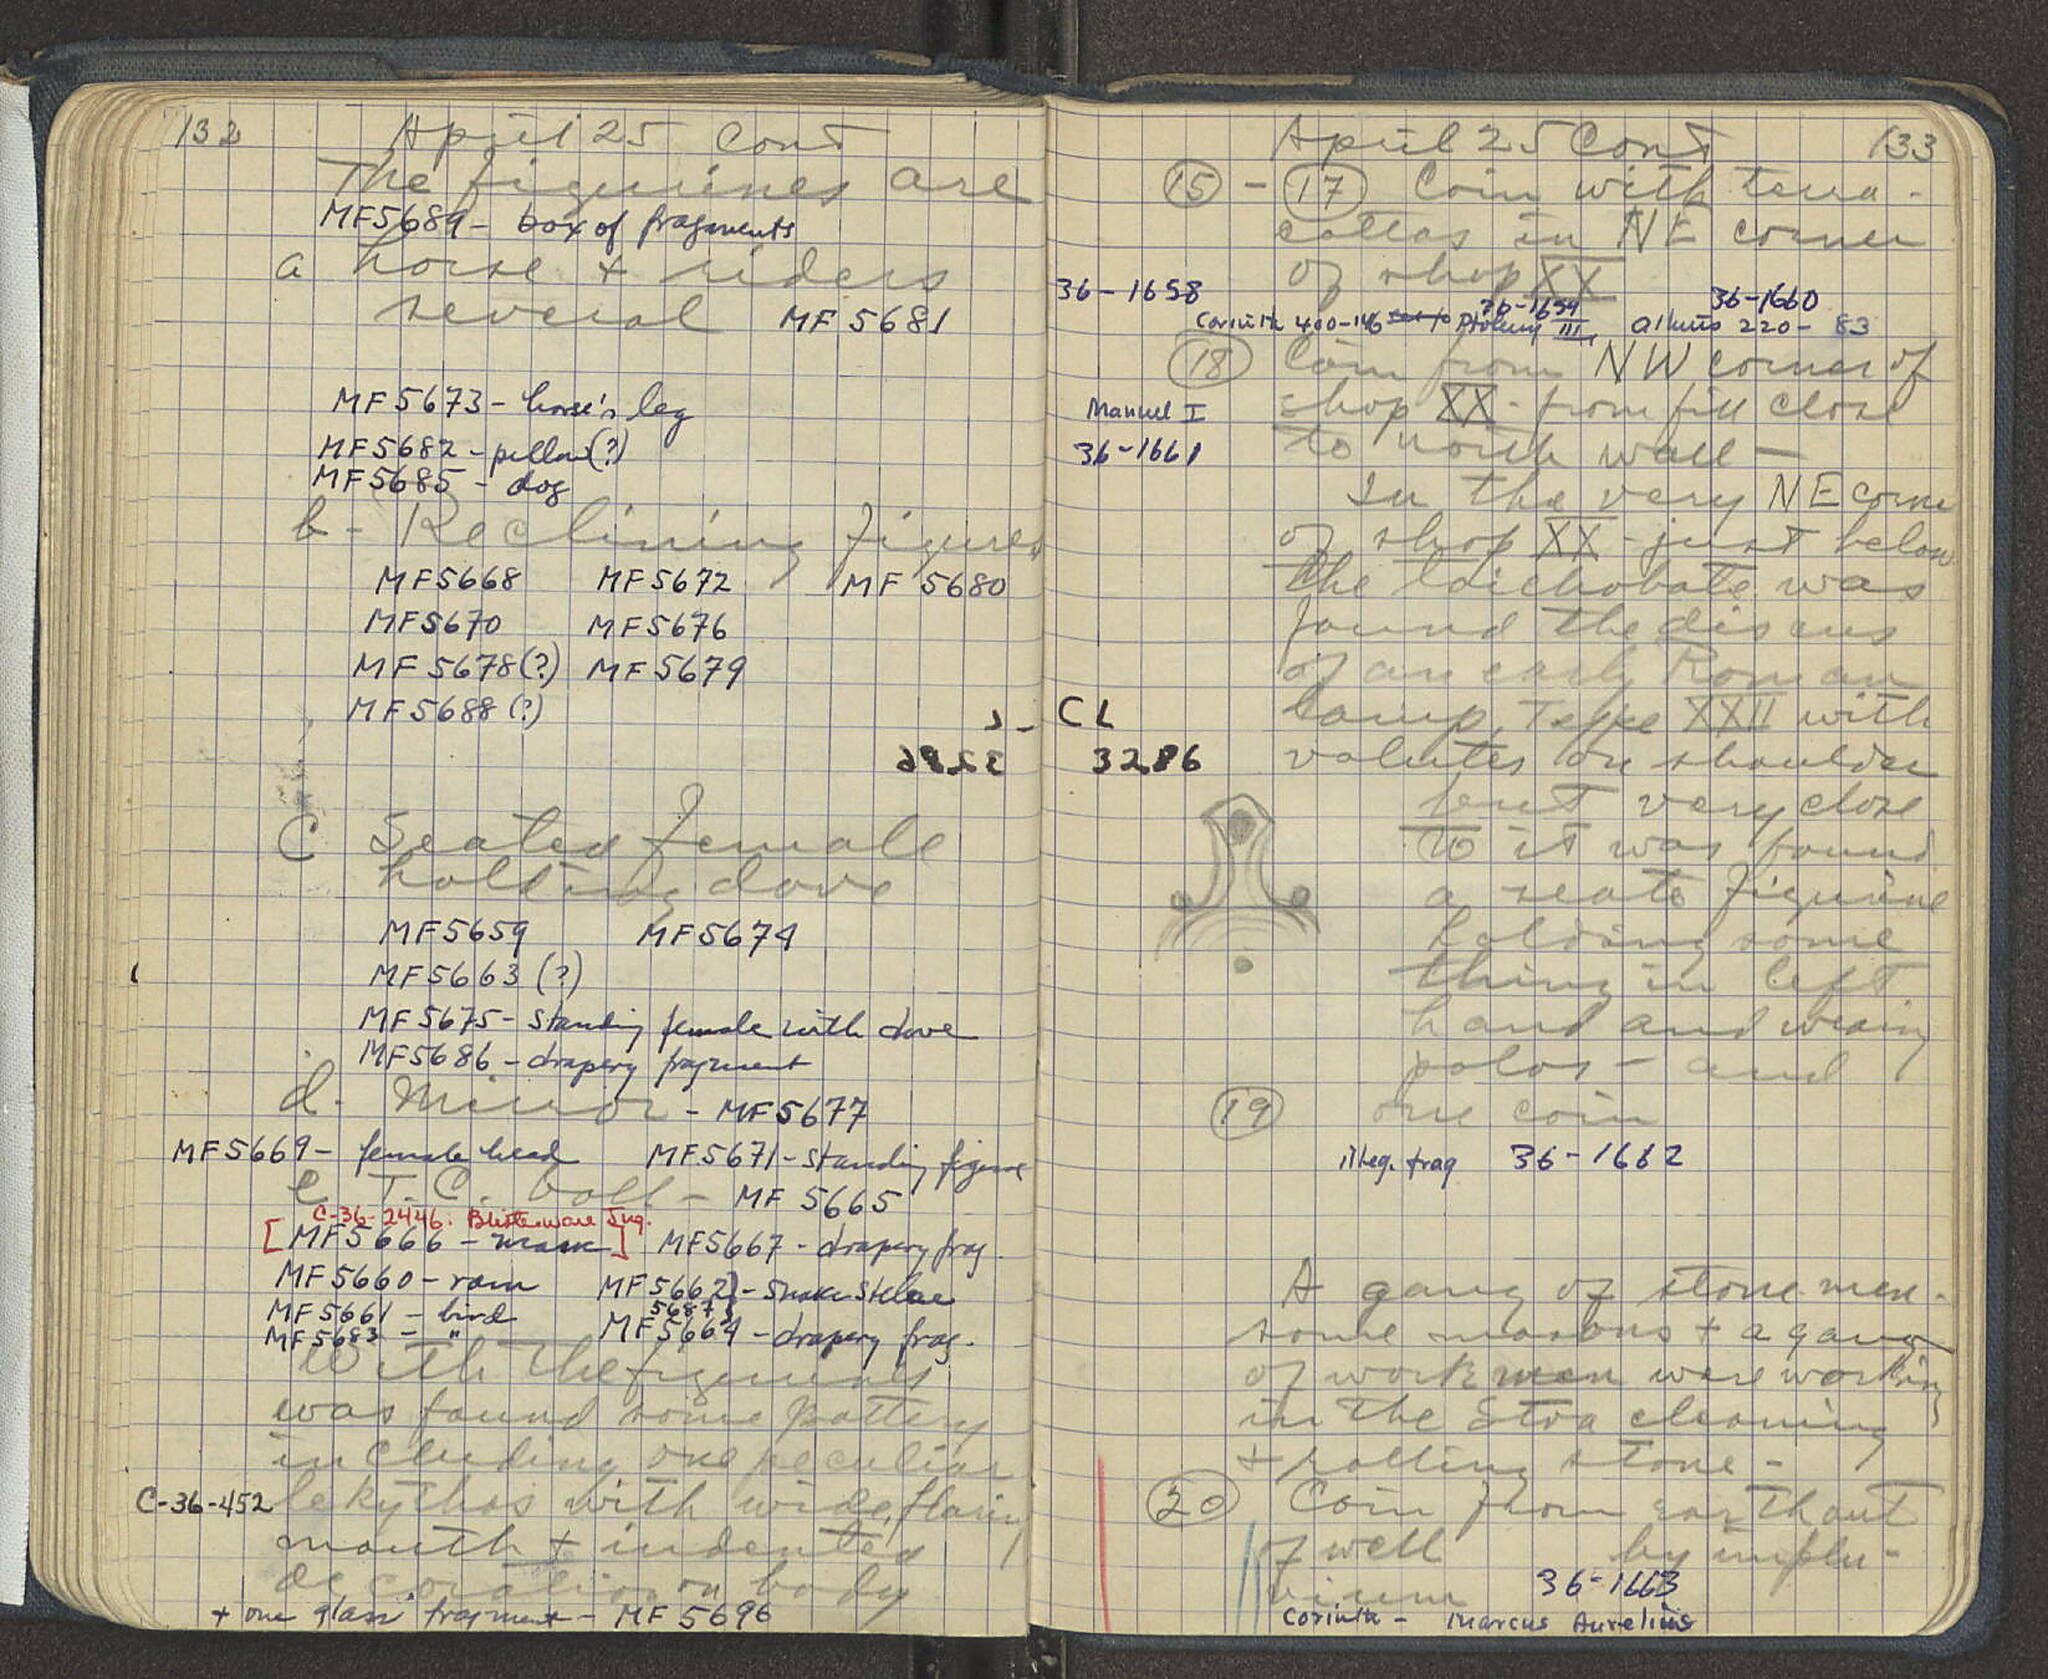 132 April 25 Cont
The figurines are
MF5689 - box of fragments
a horse + riders
several MF 5681
MF 5673 - horse's leg
MF 5682 - pillow (?)
MF 5685 - dog
b - Reclining figures
MF5668 MF5672 MF 5680
MF5670 MF5676
MF 5678(?) MF 5679
MF 5688 (?)
C Seated female
holding dove
MF5659 MF5674
MF5663 (?)
MF 5675 - standing female with dove
MF5686 - drapery fragment
d. Mirror - MF5677
MF5669 - female head MF5671 - standing figure
e. T.C. ball - MF 5665
C-36-2446. Blisterware Jug.
[MF5666 - mask] MF5667 - drapery frag.
MF5660 - ram MF5662} - Snake Stelae
5687}
MF5661 - bird
MF5683 - " MF5664 - drapery frag.
With the figurines
was found some pottery
including one peculiar
C-36-452 lekythos with wide, flaring
mouth + indented
decoration on body
+ one glass fragment - MF 5696
April 25 Cont 133
(15) - (17) Coin with terra-
cottas in NE corner
of shop XX
36-1658 36-1659 36-1660
Corinth 400-146 Ptolemy III, Athens 220-83
(18) Coin from NW corner of
Manuel I shop XX - from fill close
36-1661 to north wall -
In the very NE corne
of shop XX - just below
the toichobate was
found the discus
of an early Roman
CL lamp, Type XXII with
3286 volutes on shoulder
but very close
to it was found
a seate figurine
holding some
thing in left
hand and wearing
polos - and
(19) one coin
illeg. frag 36-1662
A gang of stone men -
some masons + a gang
of workmen were working
in the Stoa cleaning
+ rolling stone -
(20) Coin from earth out
of well by implu-
vium 36-1663
Corinth - Marcus Aurelius